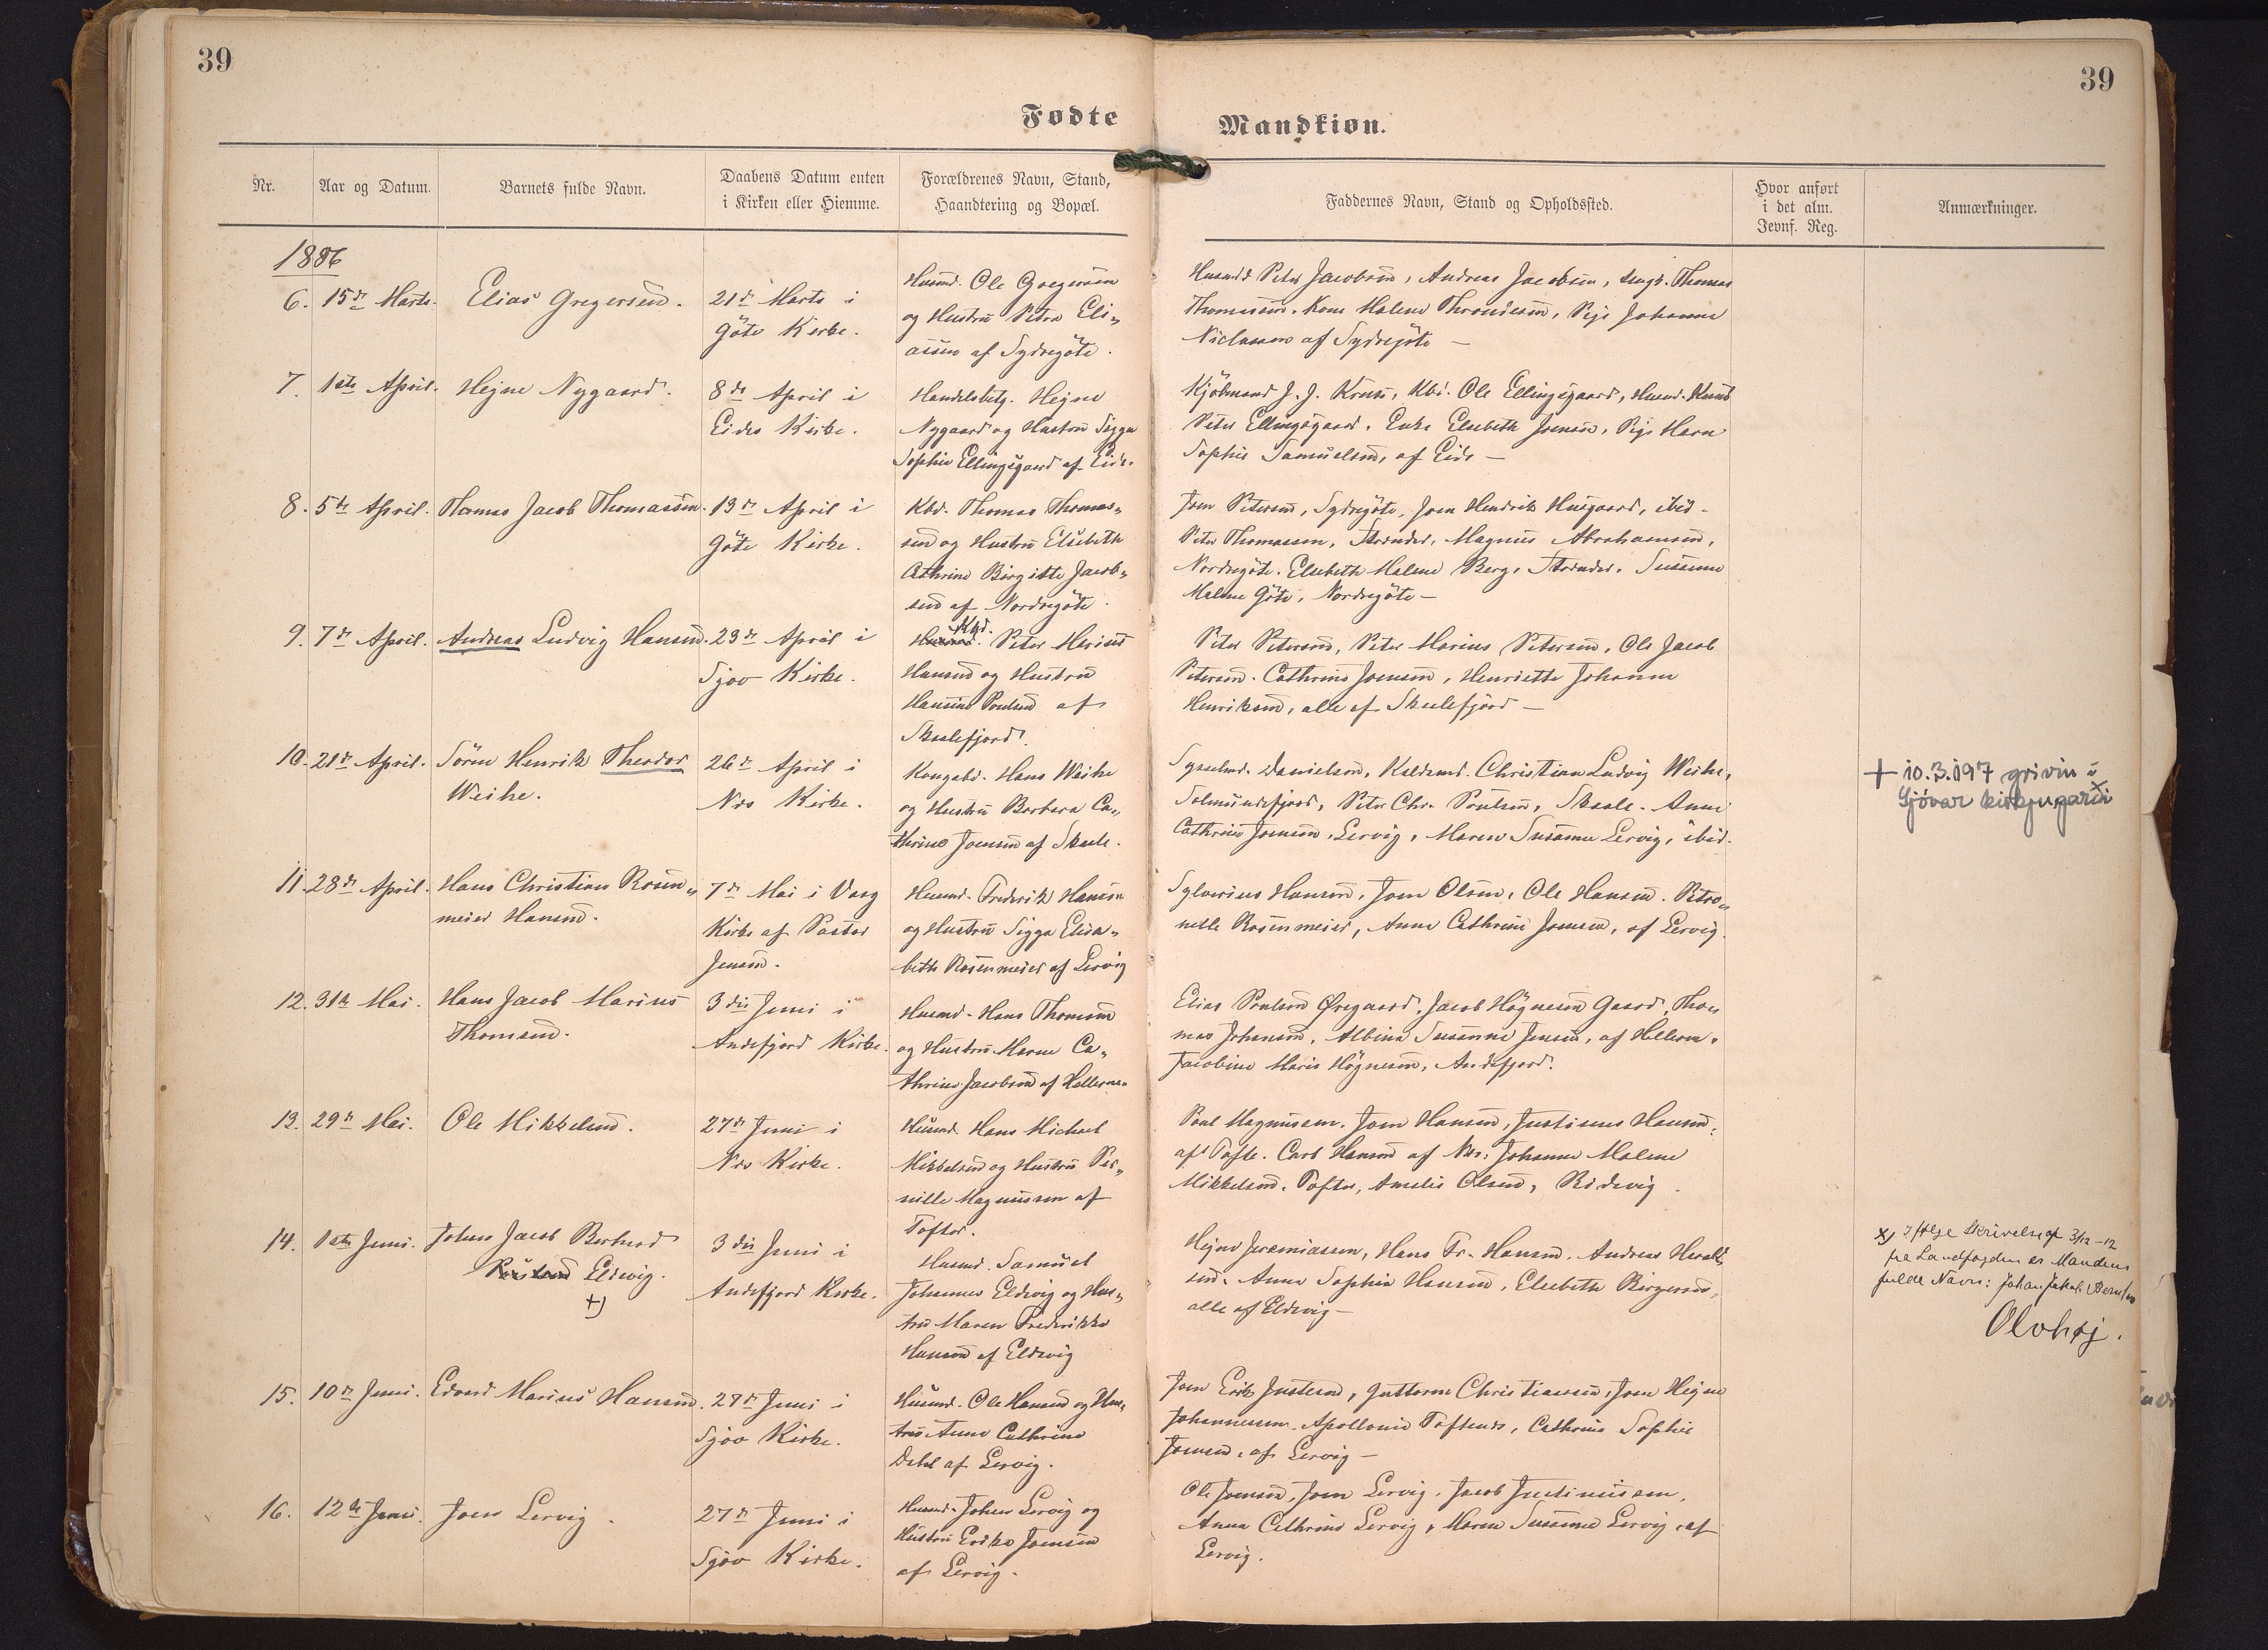 39
39
Fødte
Mandkiøn.
Nr.
Aar og Datum.
Barnets fulde Navn.
Daabens Datum enten
i Kirken eller Hiemme.
Forældrenes Navn, Stand,
Haandtering og Bopæl.
Faddernes Navn, Stand og Opholdssted.
Hvor anført
i det alm.
Jevnf. Reg.
Anmærkninger.
1886
6. 15de Marts. Elias Gregersen. 21de Marts i
Göte Kirke.
Husmd. Ole Gregersen
og Hustru Petra Eli„
assen af Sydregöte.
Husmd Peter Jacobsen, Andreas Jacobsen, Ungk. Thomas
Thomassen. Kone Malene Throndesen, Pige Johanne
Niclassen af Sydregöte —
7. 1ste April. Hejne Nygaard. 8de April i
Eides Kirke.
Handelsbetj. Hejne
Nygaard og Hustru Sigga
Sophie Ellingsgaard af Eide.
Kjöbmand J. J. Kruse, Kbd. Ole Ellingsgaard, Husmd.
Peter Ellingsgaard. Enke Elsebeth Joensen, Pige
Sophie Samuelsen, af Eide —
8. 5te April. Thomas Jacob Thomassen. 13de April i
Göte Kirke.
Kbd. Thomas Thomas„
sen og Hustru Elsebeth
Cathrine Birgitte Jacob„
sen af Nordregöte.
Joen Petersen, Sydregöte, Joen Hendrik Husgaard, ibid.
Peter Thomassen, Strænder, Magnus Abrahamsen,
Nordregöte. Elsebeth Malene Berg, Strænder. Susanne
Malene Göte, Nordregöte —
9. 7de April. Andreas Ludvig Hansen. 23de April i
Sjov Kirke.
Kbd.
Husmd. Peter Marius
Hansen og Hustru
Hansine Poulsen af
Skaalefjord.
Peter Petersen, Peter Marius Petersen, Ole Jacob
Petersen. Cathrine Joensen, Henriette Johanne
Henriksen, alle af Skaalefjord —
10. 21de April. Sören Henrik Theodor
Weihe.
26de April i
Nes Kirke.
Kongsbd. Hans Weihe
og Hustru Barbara Ca„
thrine Joensen af Skaale.
Sysselmd. Danielsen, Christian Ludvig Weihe,
Solmundefjord, Peter Chr. Poulsen, Skaale. Anne
Cathrine Joensen, Lervig, Maren Susanne Lervig, ibid.
+ 10.3.197 grivin í
Gjóvar kirkjugarði
11. 28de April. Hans Christian Rosen„
meier Hansen.
7de Mai i Vaag
Kirke af Pastor
Jensen.
Husmd. Frederik Hansen
og Hustru Sigga Elisa„
beth Rosenmeier af Lervig
Sylverius Hansen, Joen Olsen, Ole Hansen. Petro„
nelle Rosenmeier, Anne Cathrine Joensen, af Lervig.
12. 31te Mai. Hans Jacob Marius
Thomsen.
3die Juni i
Andefjord Kirke.
Husmd. Hans Thomsen
og Hustru Maren Ca„
thrine Jacobsen af Hellerne.
Elias Poulsen Øregaard, Jacob Högnesen Gaard, Tho„
mas Johansen, Albina Susanne Jensen, af Hellerne.
Jacobine Marie Högnesen, Andefjord.
13. 29de Mai. Ole Mikkelsen. 27de Juni i
Nes Kirke.
Husmd. Hans Michael
Mikkelsen og Hustru Per„
nille Magnussen af
Tofter.
Poul Magnussen. Joen Hansen, Justinus Hansen,
af Tofte. Carl Hansen af Nes. Johanne Malene
Mikkelsen, Tofter, Amelie Olsen, Ridevig.
14. 1ste Juni. Johan Jacob Berhard
Eldevig.
+)
3die Juni i
Andefjord Kirke.
Husmd. Samuel
Johannes Eldevig og Hus„
tru Maren Frederikke
Hansen af Eldevig
Hejne Jeremiassen, Hans Fr. Hansen. Andreas Harald„
sen. Anne Sophie Hansen, Elsebeth Birgersen,
alle af Eldevig —
x) Ifølge Skrivelse af 3/12-12
fra Landfogden er Mandens
fulde Navn: Johan Jakob
Olvhøj.
15. 10de Juni. Edvard Marius Hansen. 27de Juni i
Sjov Kirke.
Husmd. Ole Hansen og Hus„
tru Anne Cathrine
Dahl af Lervig.
Joen Erik Justesen, Guttorm Christiansen, Joen Hejne
Johannesen. Apollonia Toftenes, Cathrine Sophie
Joensen, af Lervig —
16. 12te Juni. Joen Lervig. 27de Juni i
Sjov Kirke.
Husmd. Johan Lervig og
Hustru Erika Joensen
af Lervig.
Ole Joensen, Joen Lervig. Jacob Justinussen.
Anna Cathrine Lervig, Maren Susanne Lervig, af
Lervig.